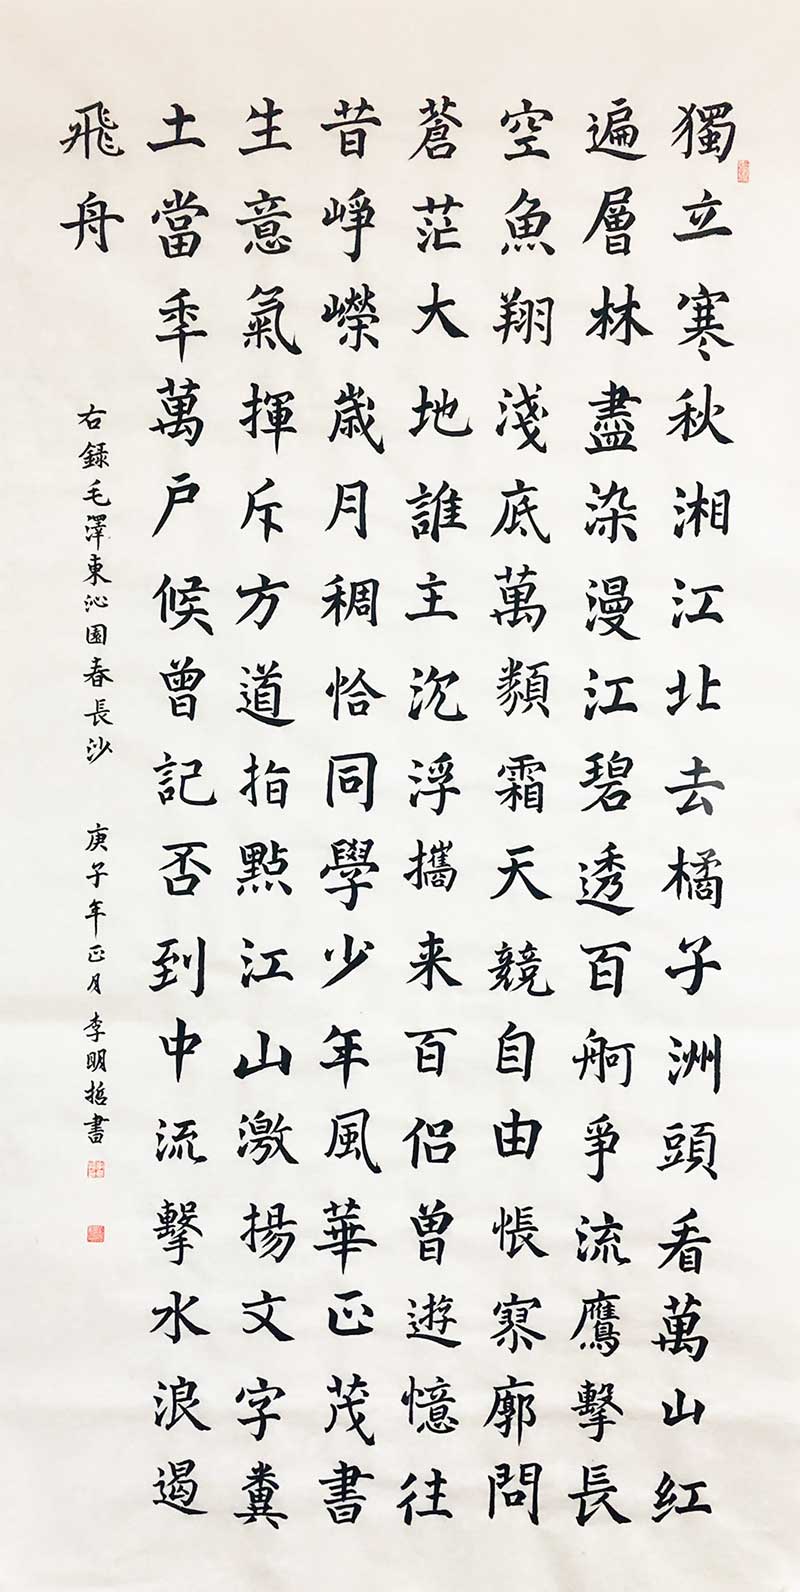 獨立寒秋湘江北去橘子洲頭看萬山紅
遍層林盡染漫江碧透百舸爭流鷹擊長
空魚翔淺底萬類霜天競自由悵寥廓問
蒼茫大地誰主沉浮攜来百侣曾遊憶往
昔崢嶸歲月稠恰同學少年風華正茂書
生意氣揮斥方遒指點江山激揚文字糞
土當秊萬户候曾記否到中流擊水浪遏
飛舟
右録毛澤東沁園春長沙 庚子年正月李明哲書